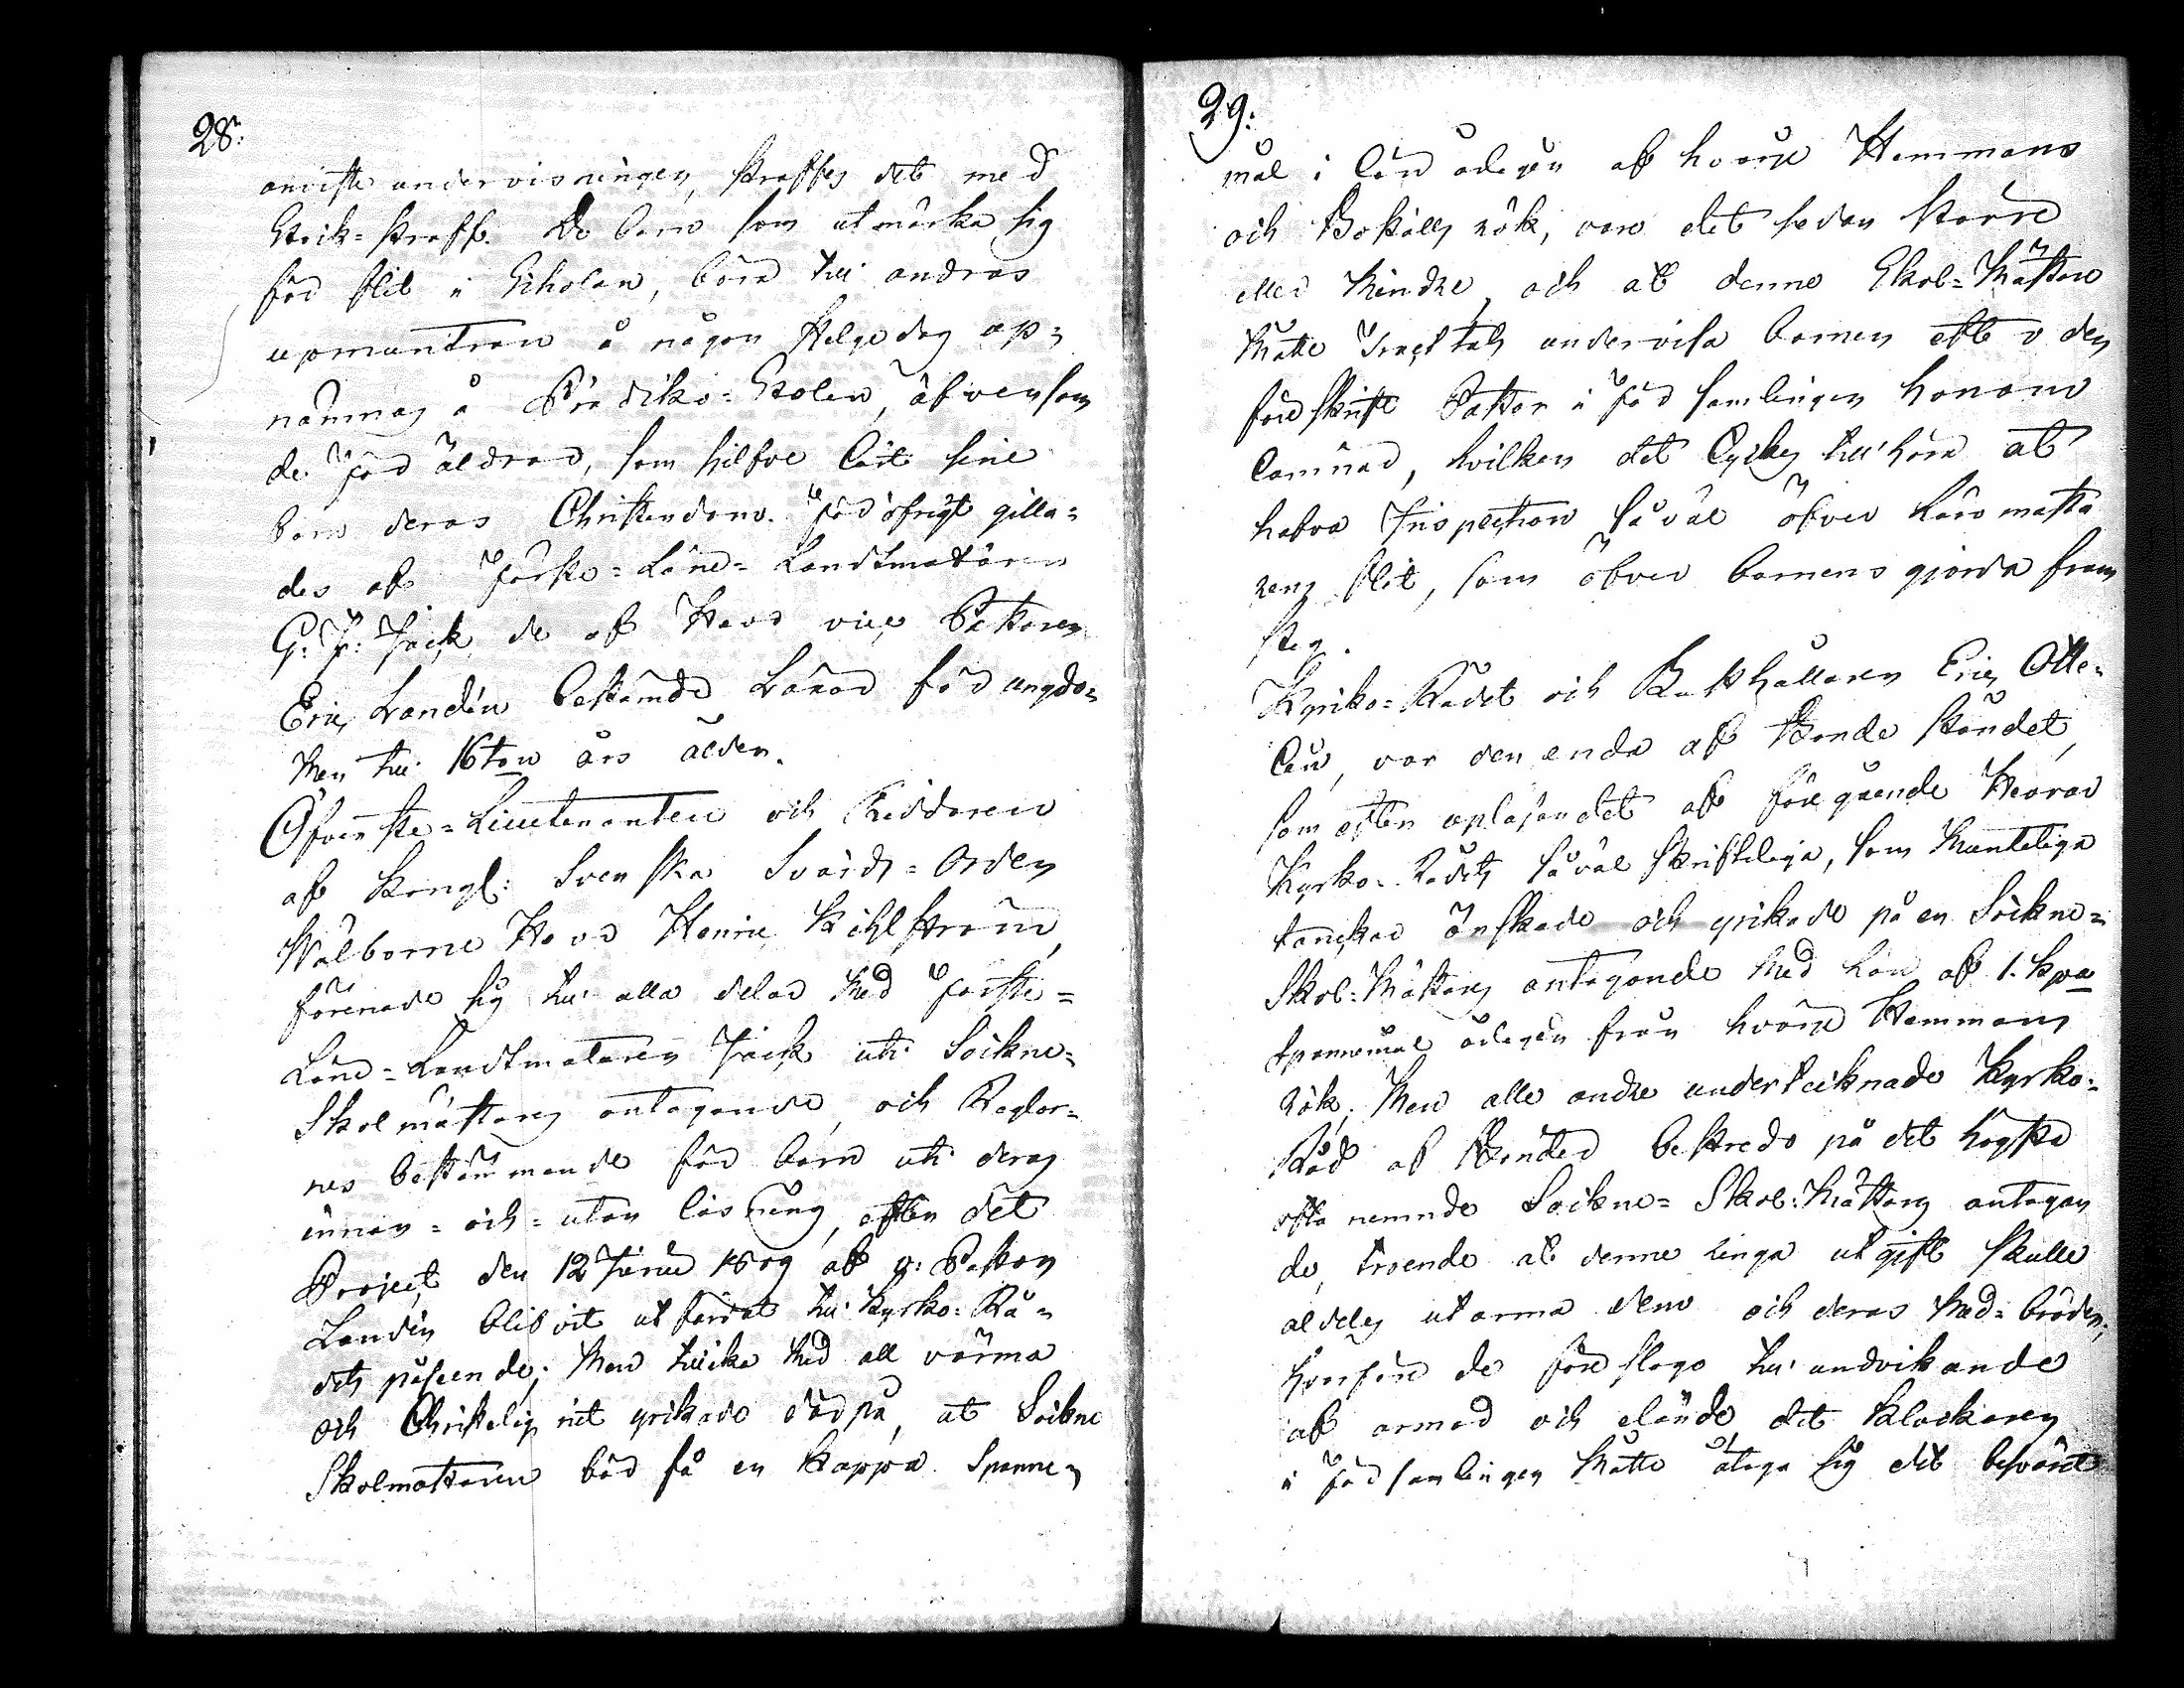 28:
aniste undervisningen, straffes det med
Strik-straff. De barn som utmärka sig
för flit i Scholan, böra till andras
upmuntran å någon Helgedag op-
nämnas å Prediko-Stolen, äfvensom
de Föräldrar, som sielfve lärt sine
barn deras Christendom. För öfrigt gilla-
des af Förste-Land-Landtmätaren
G: F: Jack de af Herr vice Pastoren
Eric Landin bestämda Läror för ungdo-
men till 16ton års ålder.
Öfverste-Lieutenanten och Riddaren
af Kongl: Svenska Svärds-Orden
Wälborne Herr Henric Kihlström,
förenade sig till alla delar med Förste-
Land-Landtmätaren Jack uti Sockne-
Skolmästares antagande, och Reglor-
nes bestämmande för barn uti deras
innan- och utan läsning, efter det
Project den 12 Junii 1809 af v: Pastor
Landin blifvit utfärdat till Kyrko-Rå-
dets påseende; Men tillika med all värma
och Christelig nit yrkade därpå, at Sockne
Skolmästaren bör få en Kappa Spanne-
29:
mål i lön årligen af hvarje Hemmans
och Boställs rök, vare det sedan större
eller mindre, och at denne Skol-Mästare
måtte Tracktals undervisa barnen efter den
föreskrift Pastor i Församlingen honom
lämnar, hvilken det lyckes tillhöra at
hafva Inspection såväl öfver Läromästa
rens flit, som öfver barnens giorda fram
steg.
Kyrko-Rådet och Rusthållaren Eric Otte-
lin, var den enda af Bonde ståndet,
som efter uplasandet af föregående Herrar
Kyrko-Rådets såväl skrifteliga, som munteliga
tanckar önskade och yrkade på en Sockne-
Skol-Mästares antagande med Lön af 1. kpa
spannemål årligen från hvarje Hemmans
rök; Men alle andre undertecknade Kyrko-
Råd af Bönder bestredo på det högsta
ofta nemnde Sockne-Skol-Mästares antagan
de, troende at denne ringa utgift skulle
aldeles utarma dem och deras Med-bröder;
hvarföre de föreslogo till undvikande
af armod och elände, det Klockaren
i Församlingen måtte åtaga sig det besväret